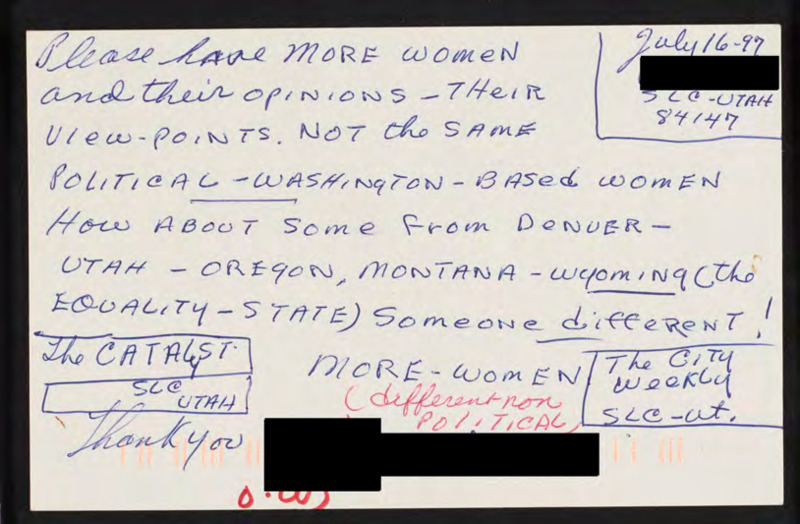 Please have MORE WOMEN
and their OPINIONS - THEIR
VIEW-POINTS. NOT the SAME
POLITICAL - WASHINGTON - BASED WOMEN
HOW ABOUT Some From DENVER -
UTAH - OREGON, MONTANA - WYOMING (the
EQUALITY - STATE) Someone different!
MORE - WOMEN
(different non
POLITICAL)
July 16-97
SLC-UTAH
84147
The CATALYST.
SLC
UTAH
The CITY
Weekly
SLC-Ut.
Thank you